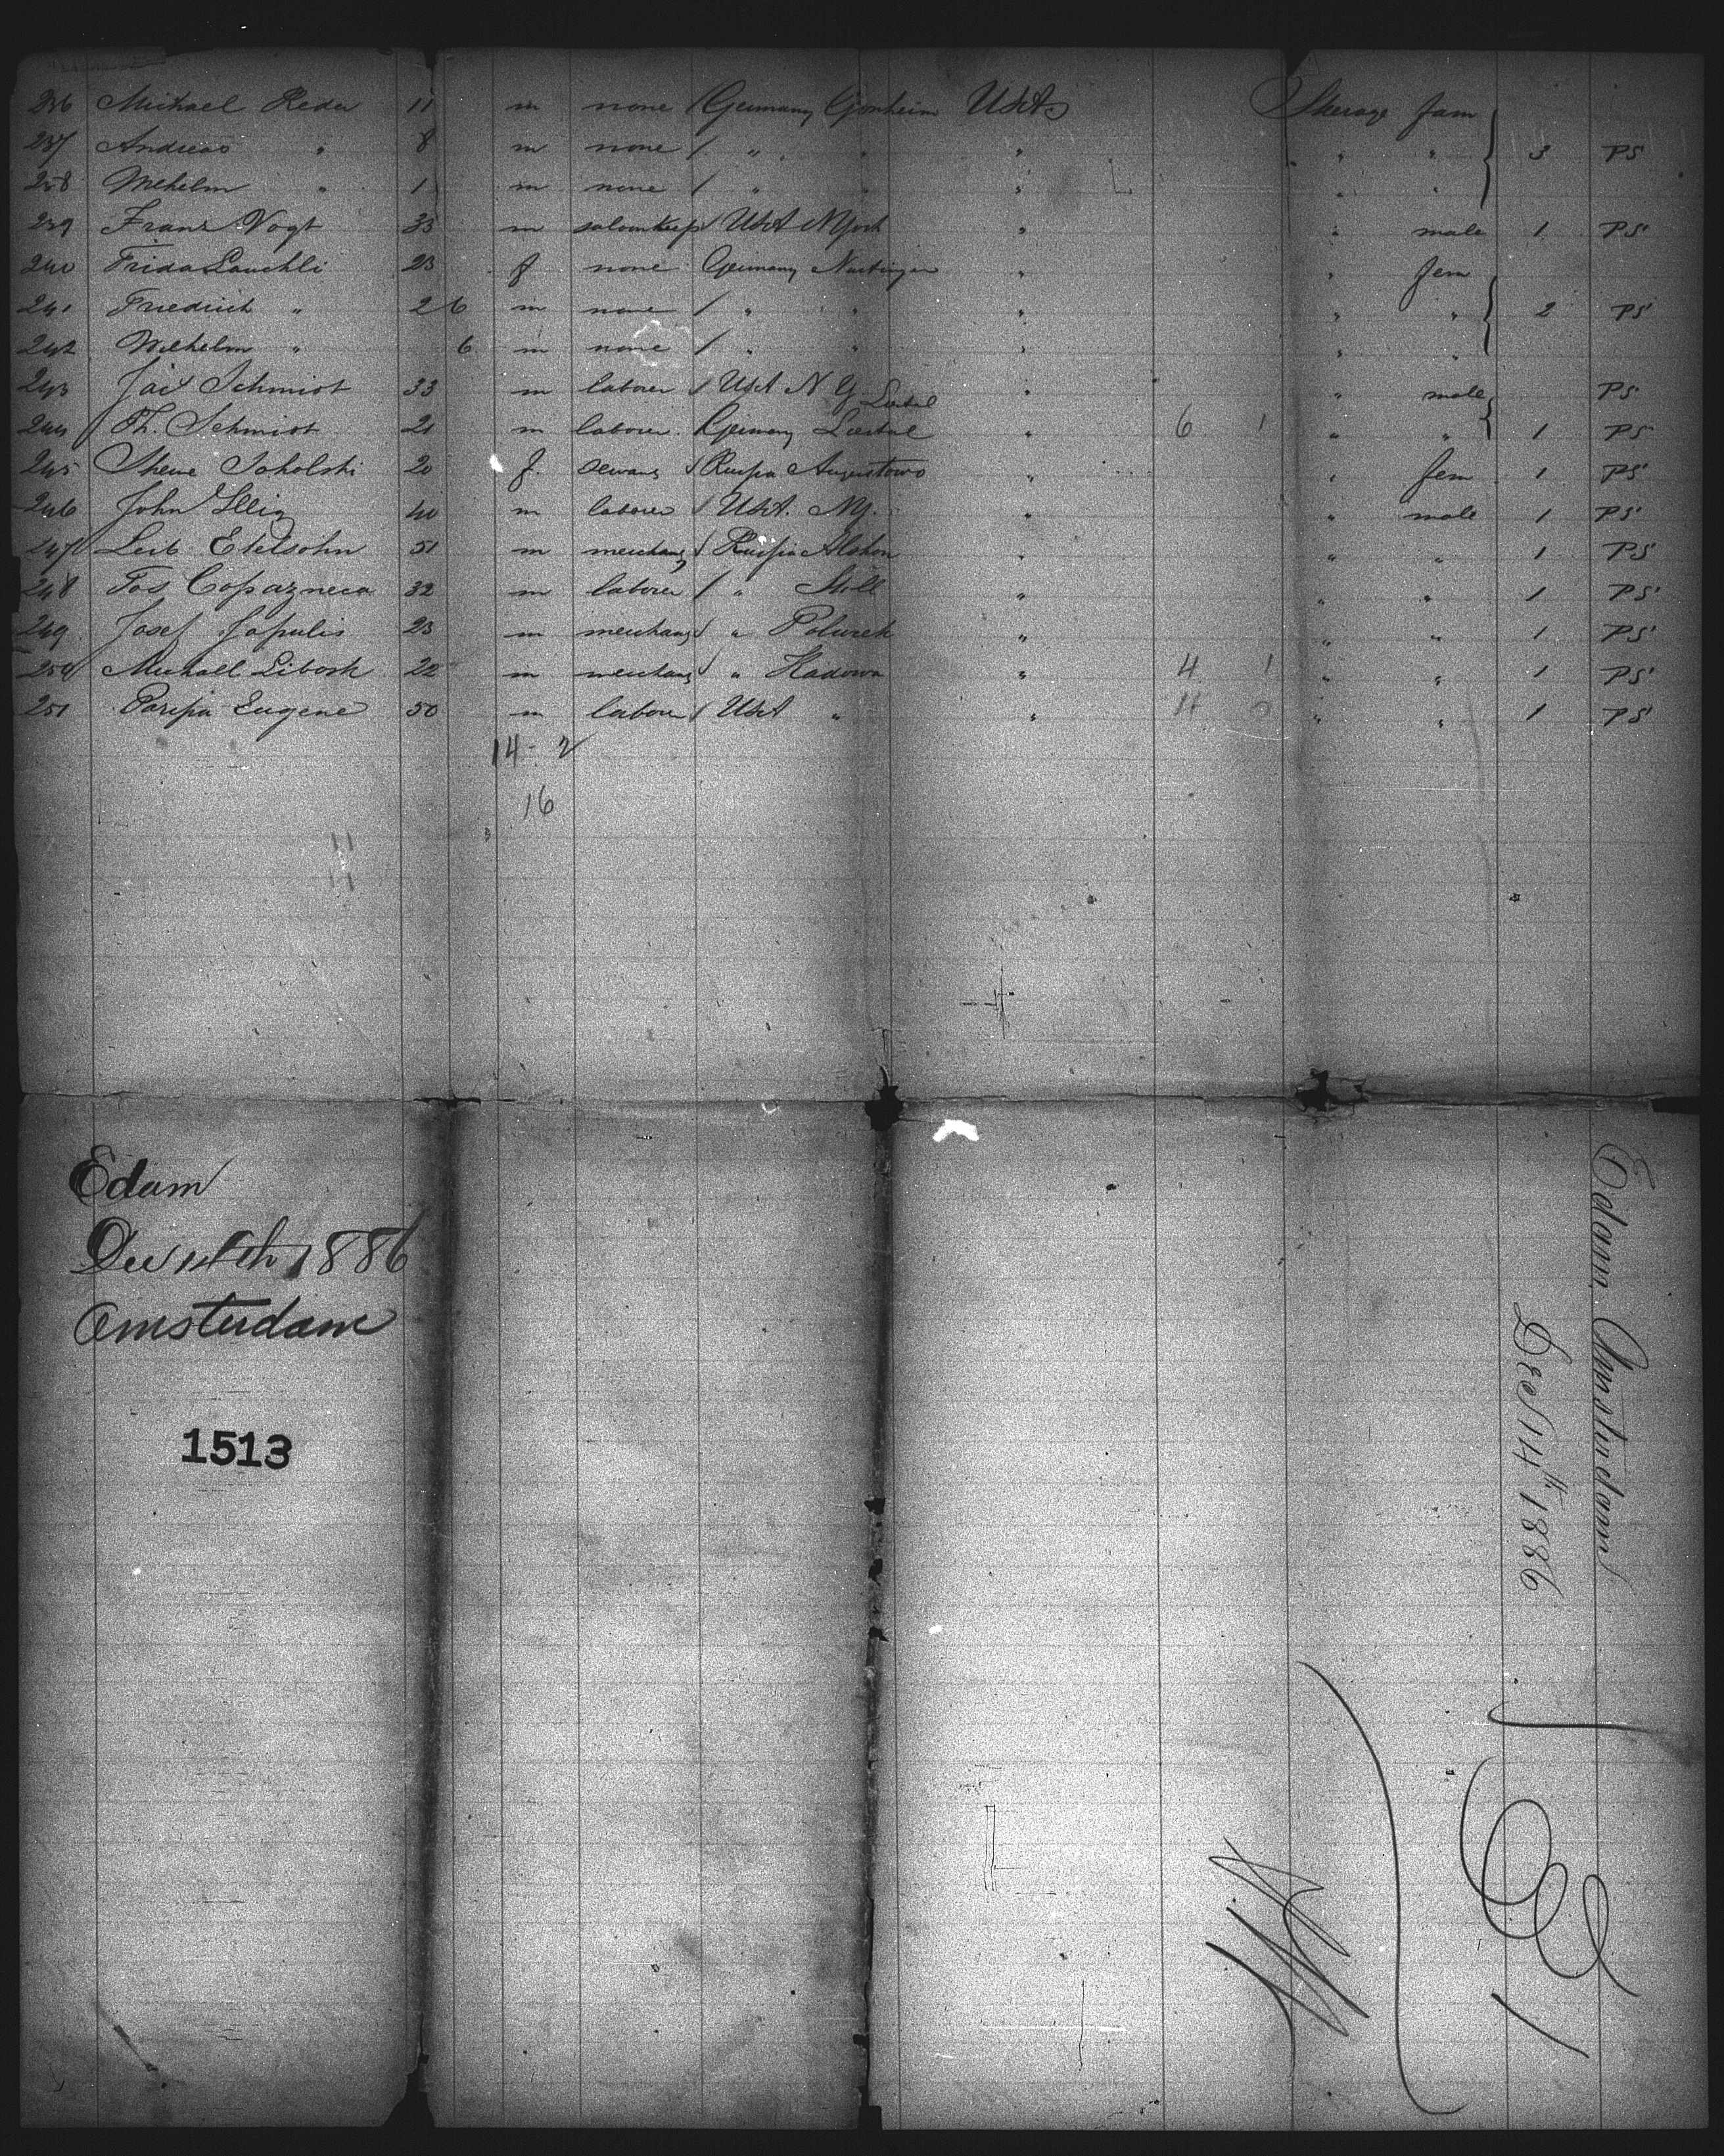 236 Michael Reder 11 m none / Germany Gonheim USA Steerage fam
237 Andreas " 8 m none / " " " " " 3 PS
238 Wilhelm " 1 m none / " " " " "
239 Franz Vogt 33 m saloonkeep / USA NYork " " male 1 PS
240 Frida Lauchli 23 f none Germany " " fem
241 Friedrich " 2 6 m none / " " " " " 2 PS
242 Wilhelm " 6 m none / " " " " "
243 Jac Schmidt 33 m laborer / USA N Y " " male PS
244 Th. Schmidt 21 m laborer Germany " 6 1 " " 1 PS
245 Sokolski 20 f. / Russia Augustowo " " fem 1 PS
246 John Illig 40 m laborer / USA. NY. " " male 1 PS
247 Leib Etelsohn 51 m merchant / Russia " " " 1 PS
248 Jos Copazneca 32 m laborer / " " " " 1 PS
249 Josef Japulis 23 m merchant / " " " " 1 PS
250 Michall Libosk 22 m merchant / " Kadowa " 4 1 " " 1 PS
251 Eugene 50 m labore / USA " " 11 0 " " 1 PS
14 - 2
16
Edam
Dec 14th 1886
Amsterdam
1513
Edam Amsterdam
Dec 14th 1886